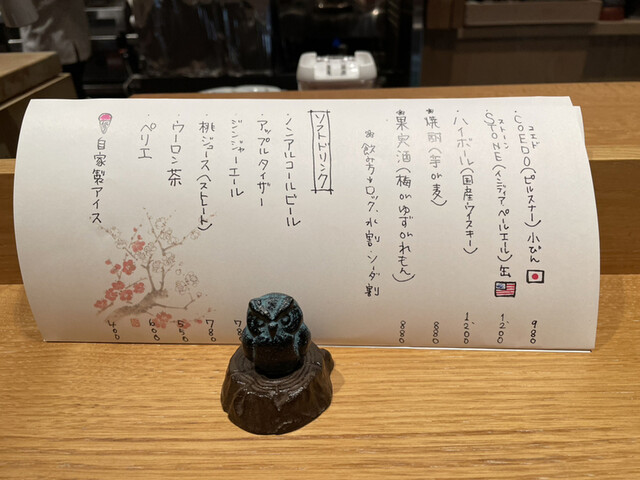 コエド
COEDO(ピルスナー)小びん 980
ストーン
STONE(インディアペールエール)缶 1200
ハイボール(国産ウイスキー) 1200
*焼酎(芋or麦) 880
*果実酒(梅orゆずorれもん) 880
*飲み方→ロック、水割、ソーダ割
ソフトドリンク
ノンアルコールビール
アップルタイザー
ジンジャーエール 78
桃ジュース(ストレート) 780
ウーロン茶 550
ペリエ 600
自家製アイス 400